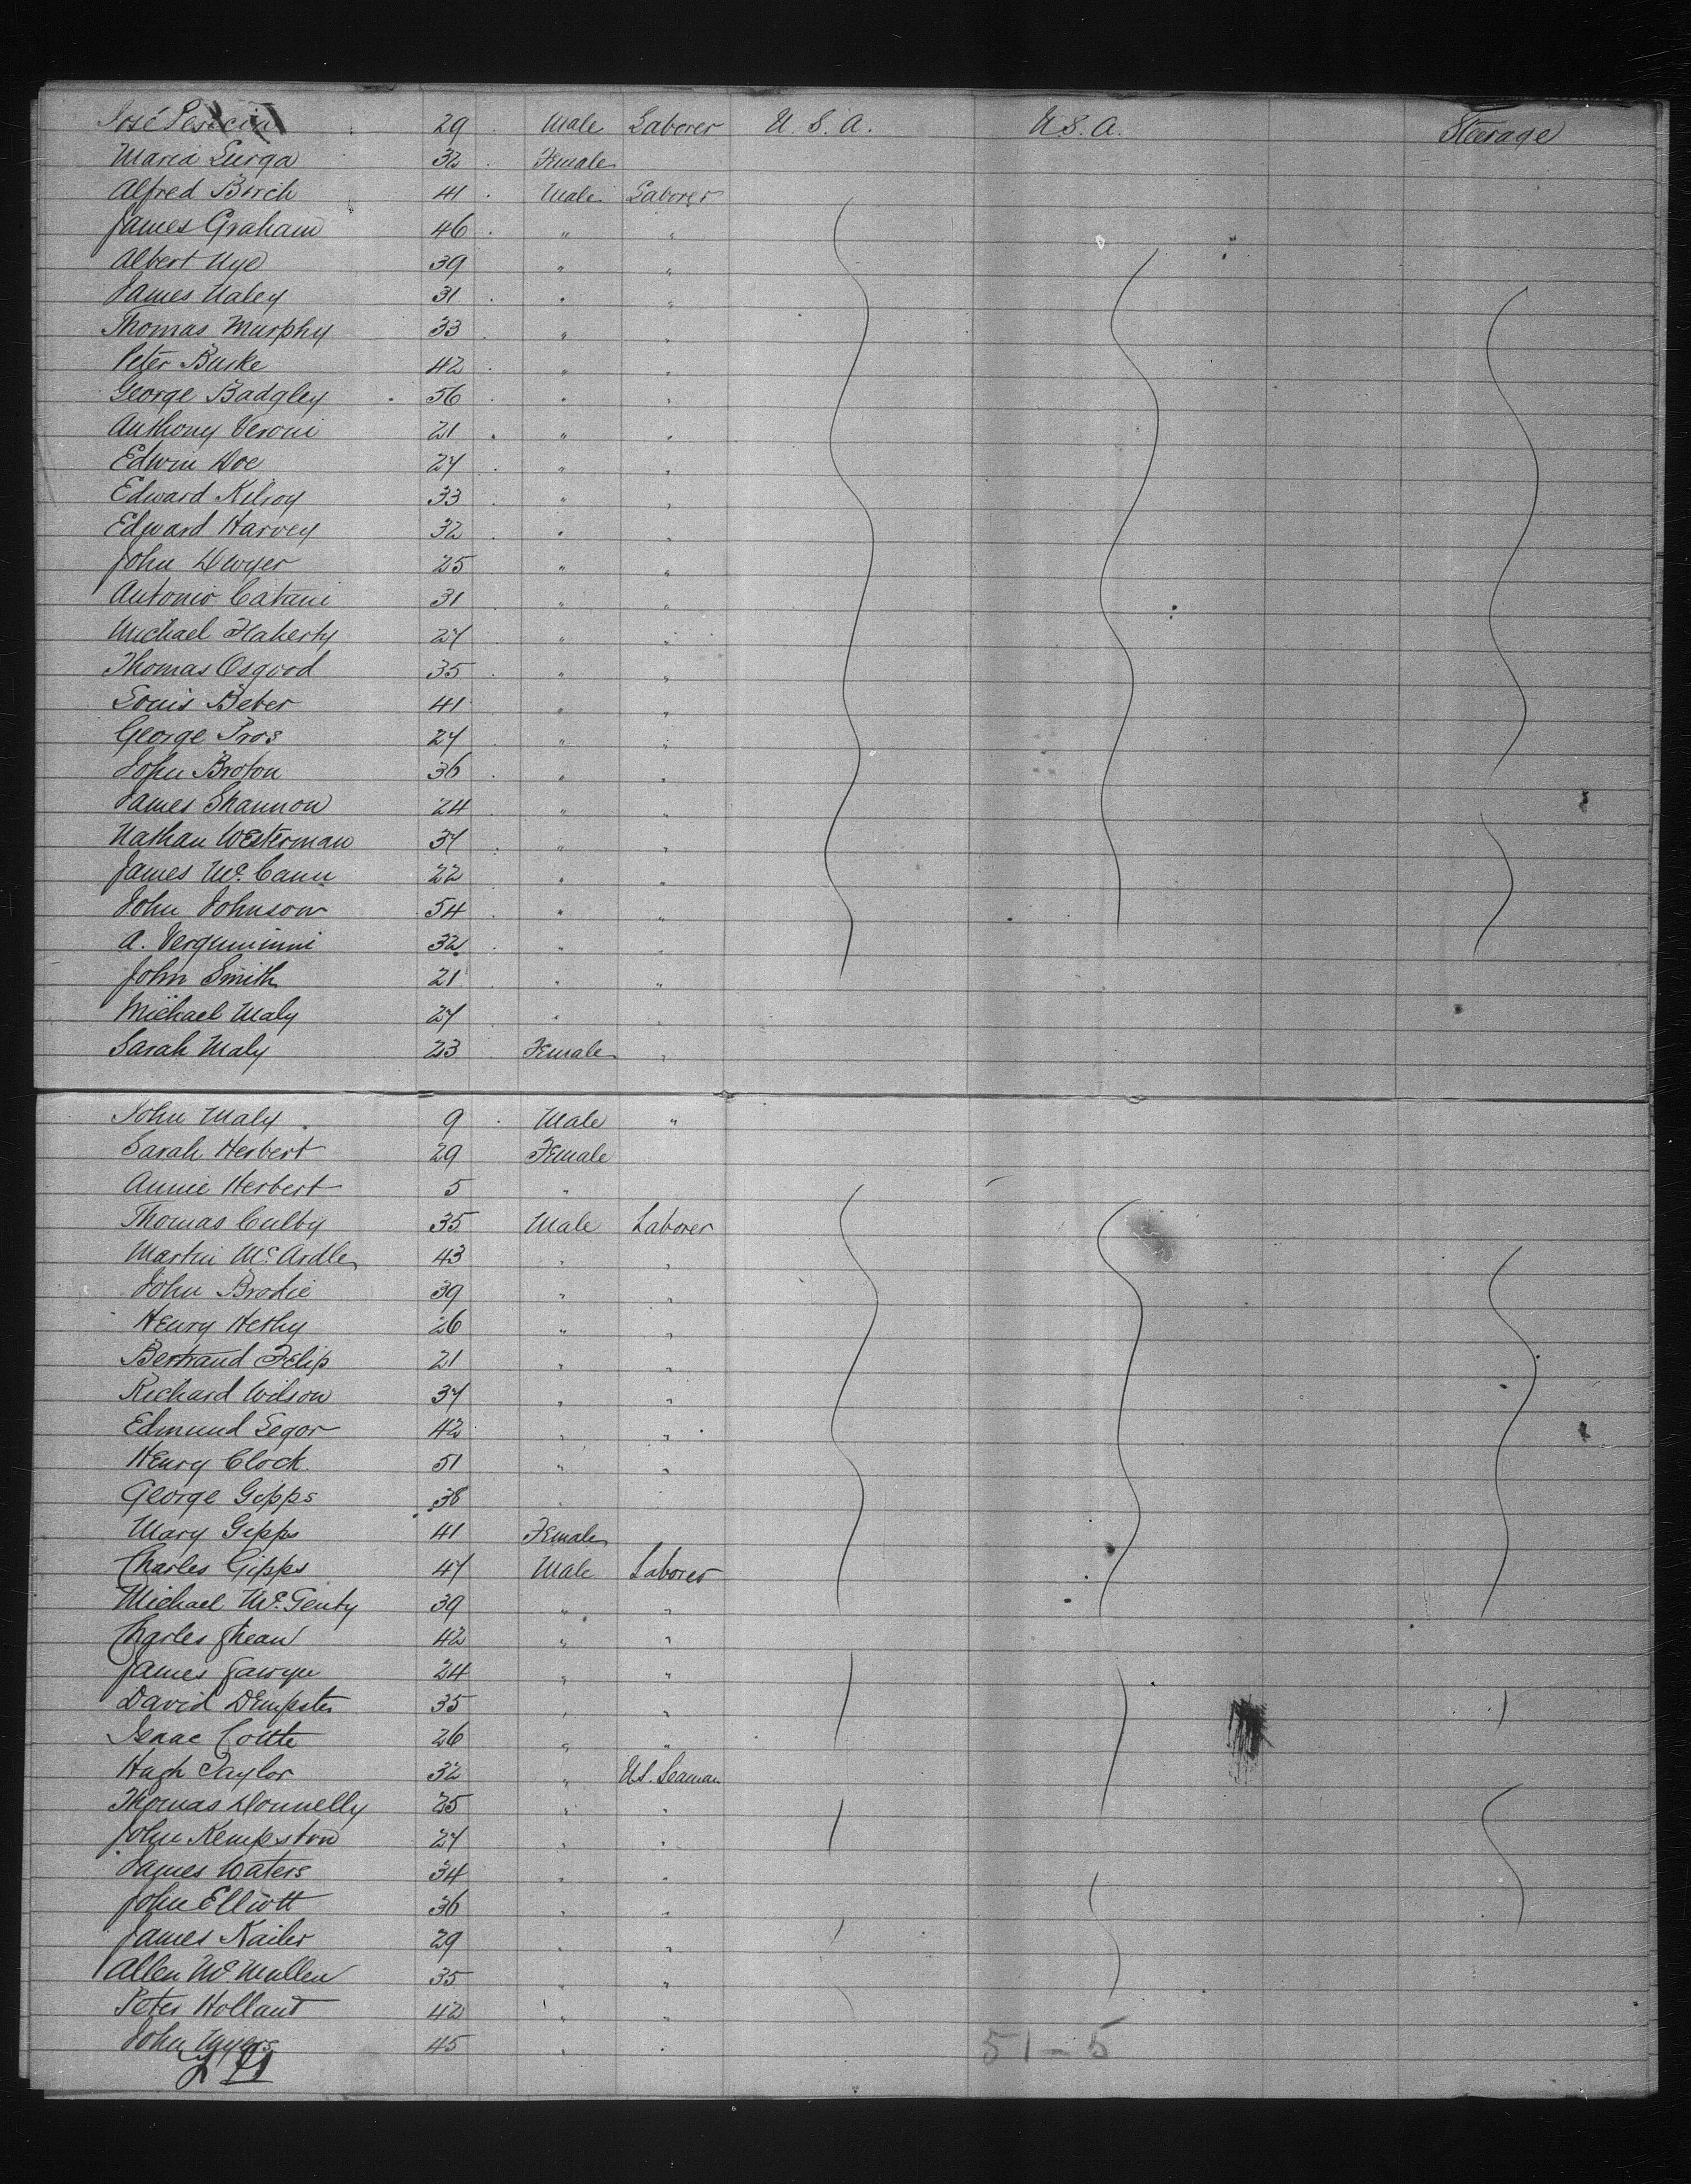 José 29 Male Laborer U. S. A. U.S.A. Steerage
Maria Surga 32 Female
Alfred Birch 41 Male Laborer
James Graham 46 " "
Albert Nye 39 " "
James Naley 31 " "
Thomas Murphy 33 " "
Peter Burke 42 " "
George Badgley 56 " "
Anthony Veroni 21 " "
Edwin Doe 27 " "
Edward Kilroy 33 " "
Edward Harvey 32 " "
John Dwyer 25 " "
Antonio Catani 31 " "
Michael Flaherty 27 " "
Thomas Osgood 35 " "
Louis Beber 41 " "
George Pros 27 " "
John Broton 36 " "
James Shannon 24 " "
Nathan Westerman 37 " "
James Mc. Cann 22 " "
John Johnson 54 " "
A. 32 " "
John Smith 21 " "
Michael Maly 27 " "
Sarah Maly 23 Female "
John Maly 9 Male "
Sarah Herbert 29 Female
Annie Herbert 5 "
Thomas Culby 35 Male Laborer
Martin Mc. Ardle 43 " "
John Brodie 39 " "
Henry Hethy 26 " "
Bertrand Felip 21 " "
Richard Wilson 37 " "
Edmund Segor 42 " "
Henry Clock 51 " "
George Gipps 38 " "
Mary Gipps 41 Female
Charles Gipps 47 Male Laborer
Michael Mc. Genty 39 " "
Charles Shean 42 " "
James 24 " "
David Dempster 35 " "
Isaac 26 " "
Hugh Taylor 32 " U.S. Seaman
Thomas Donnelly 25 " "
John Kempston 27 " "
James Waters 34 " "
John Elliott 36 " "
James Kailer 29 " "
Allen Mc. Mullen 35 " "
Peter Holland 42 " "
John Myers 45 " "
51-5